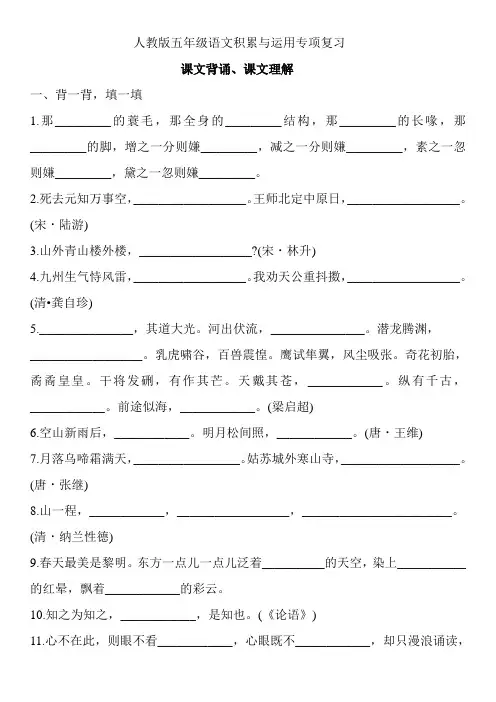 人教版五年级语文积累与运用专项复习
课文背诵、课文理解
一、背一背，填一填
1.那_________的蓑毛，那全身的_________结构，那_________的长喙，那
_________的脚，增之一分则嫌_________，减之一分则嫌_________，素之一忽
则嫌_________，黛之一忽则嫌_________。
2.死去元知万事空，__________________。王师北定中原日，__________________。
(宋·陆游)
3.山外青山楼外楼，__________________?(宋·林升)
4.九州生气恃风雷，__________________。我劝天公重抖擞，__________________。
(清•龚自珍)
5._______________，其道大光。河出伏流，_______________。潜龙腾渊，
__________________。乳虎啸谷，百兽震惶。鹰试隼翼，风尘吸张。奇花初胎，
矞矞皇皇。干将发硎，有作其芒。天戴其苍，____________。纵有千古，
____________。前途似海，____________。(梁启超)
6.空山新雨后，____________。明月松间照，____________。(唐·王维)
7.月落乌啼霜满天，_________________。姑苏城外寒山寺，___________________。
(唐·张继)
8.山一程，____________，__________________，________________________。
(清·纳兰性德)
9.春天最美是黎明。东方一点儿一点儿泛着__________的天空，染上___________
的红晕，飘着____________的彩云。
10.知之为知之，____________，是知也。(《论语》)
11.心不在此，则眼不看____________，心眼既不____________，却只漫浪诵读，